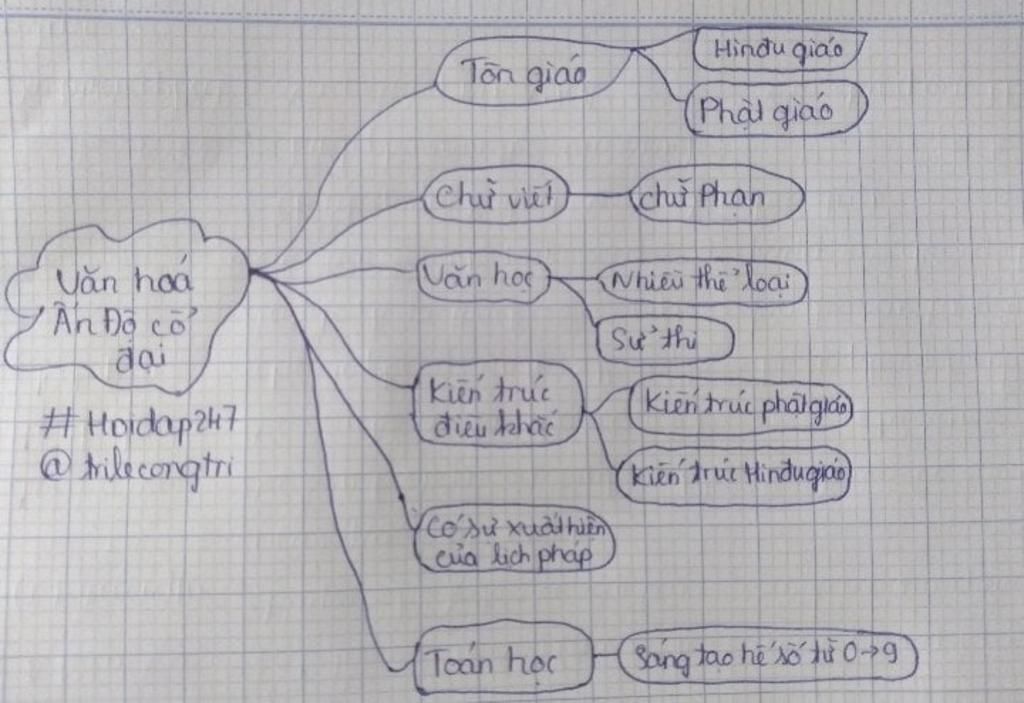 Văn hoá
Ấn Độ cổ
đại
#Hoidap247
@trilecongtri
Tôn giáo
Hinđu giáo
Phật giáo
Chữ viết
chữ Phạn
Văn học
Nhiều thể loại
Sử thi
Kiến trúc
điêu khắc
Kiến trúc phật giáo
Kiến trúc Hinđu giáo
Có sự xuất hiện
của lịch pháp
Toán học
Sáng tạo hệ số từ 0→9